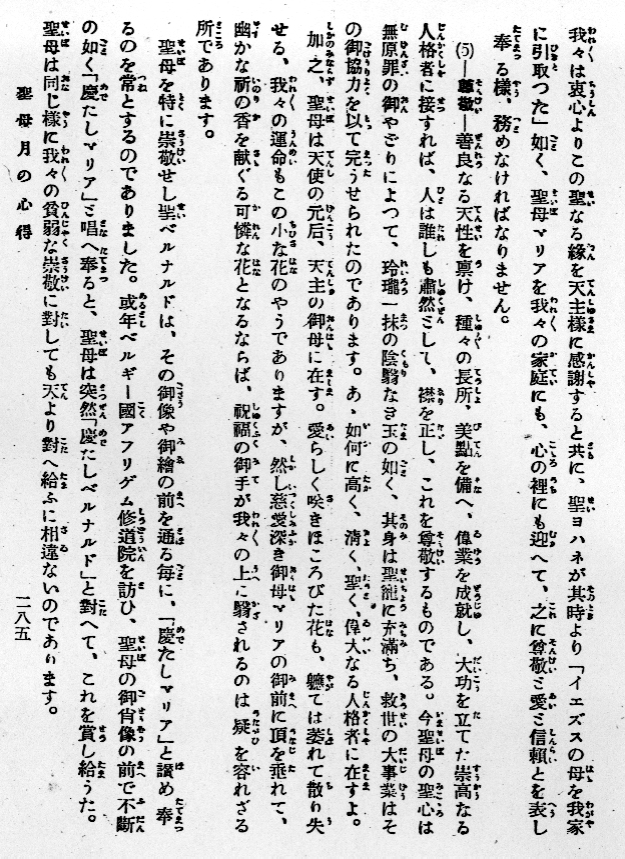 我々は衷心よりこの聖なる緣を天主樣に感謝すると共に、聖ヨハネが其時より「イエズスの母を我家
に引取つた」如く、聖母マリアを我々の家庭にも、心の裡にも迎へて、之に尊敬と愛と信賴とを表し
奉る樣、務めなければなりません。
(5)―尊敬―善良なる天性を稟け、種々の長所、美點を備へ、偉業を成就し、大功を立てた崇高なる
人格者に接すれば、人は誰しも肅然として、襟を正し、これを尊敬するものである。今聖母の聖心は
無原罪の御やどりによつて、玲瓏一抹の陰翳なき玉の如く、其身は聖寵に充滿ち、救世の大事業はそ
の御協力を以て完うせられたのであります。あゝ如何に高く、淸く、聖く、偉大なる人格者に在すよ。
加之、聖母は天使の元后、天主の御母に在す。愛らしく咲きほころびた花も、軈ては萎れて散り失
せる、我々の運命もこの小な花のやうでありますが、然し慈愛深き御母マリアの御前に頂を垂れて、
幽かな祈の香を献ぐる可憐な花となるならば、祝福の御手が我々の上に翳されるのは疑を容れざる
所であります。
聖母を特に崇敬せし聖ベルナルドは、その御像や御繪の前を通る每に、「慶たしマリア」と讃め奉
るのを常とするのでありました。或年ベルギー國アフリゲム修道院を訪ひ、聖母の御肖像の前で不斷
の如く「慶たしマリア」と唱へ奉ると、聖母は突然「慶たしベルナルド」と對へて、これを賞し給うた。
聖母は同じ樣に我々の貧弱な崇敬に對しても天より對へ給ふに相違ないのであります。
聖母月の心得
二八五